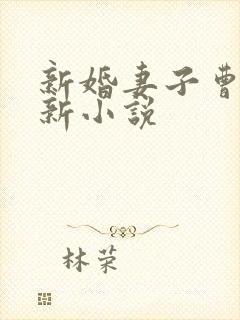 新婚妻子曹
新小说
林荣